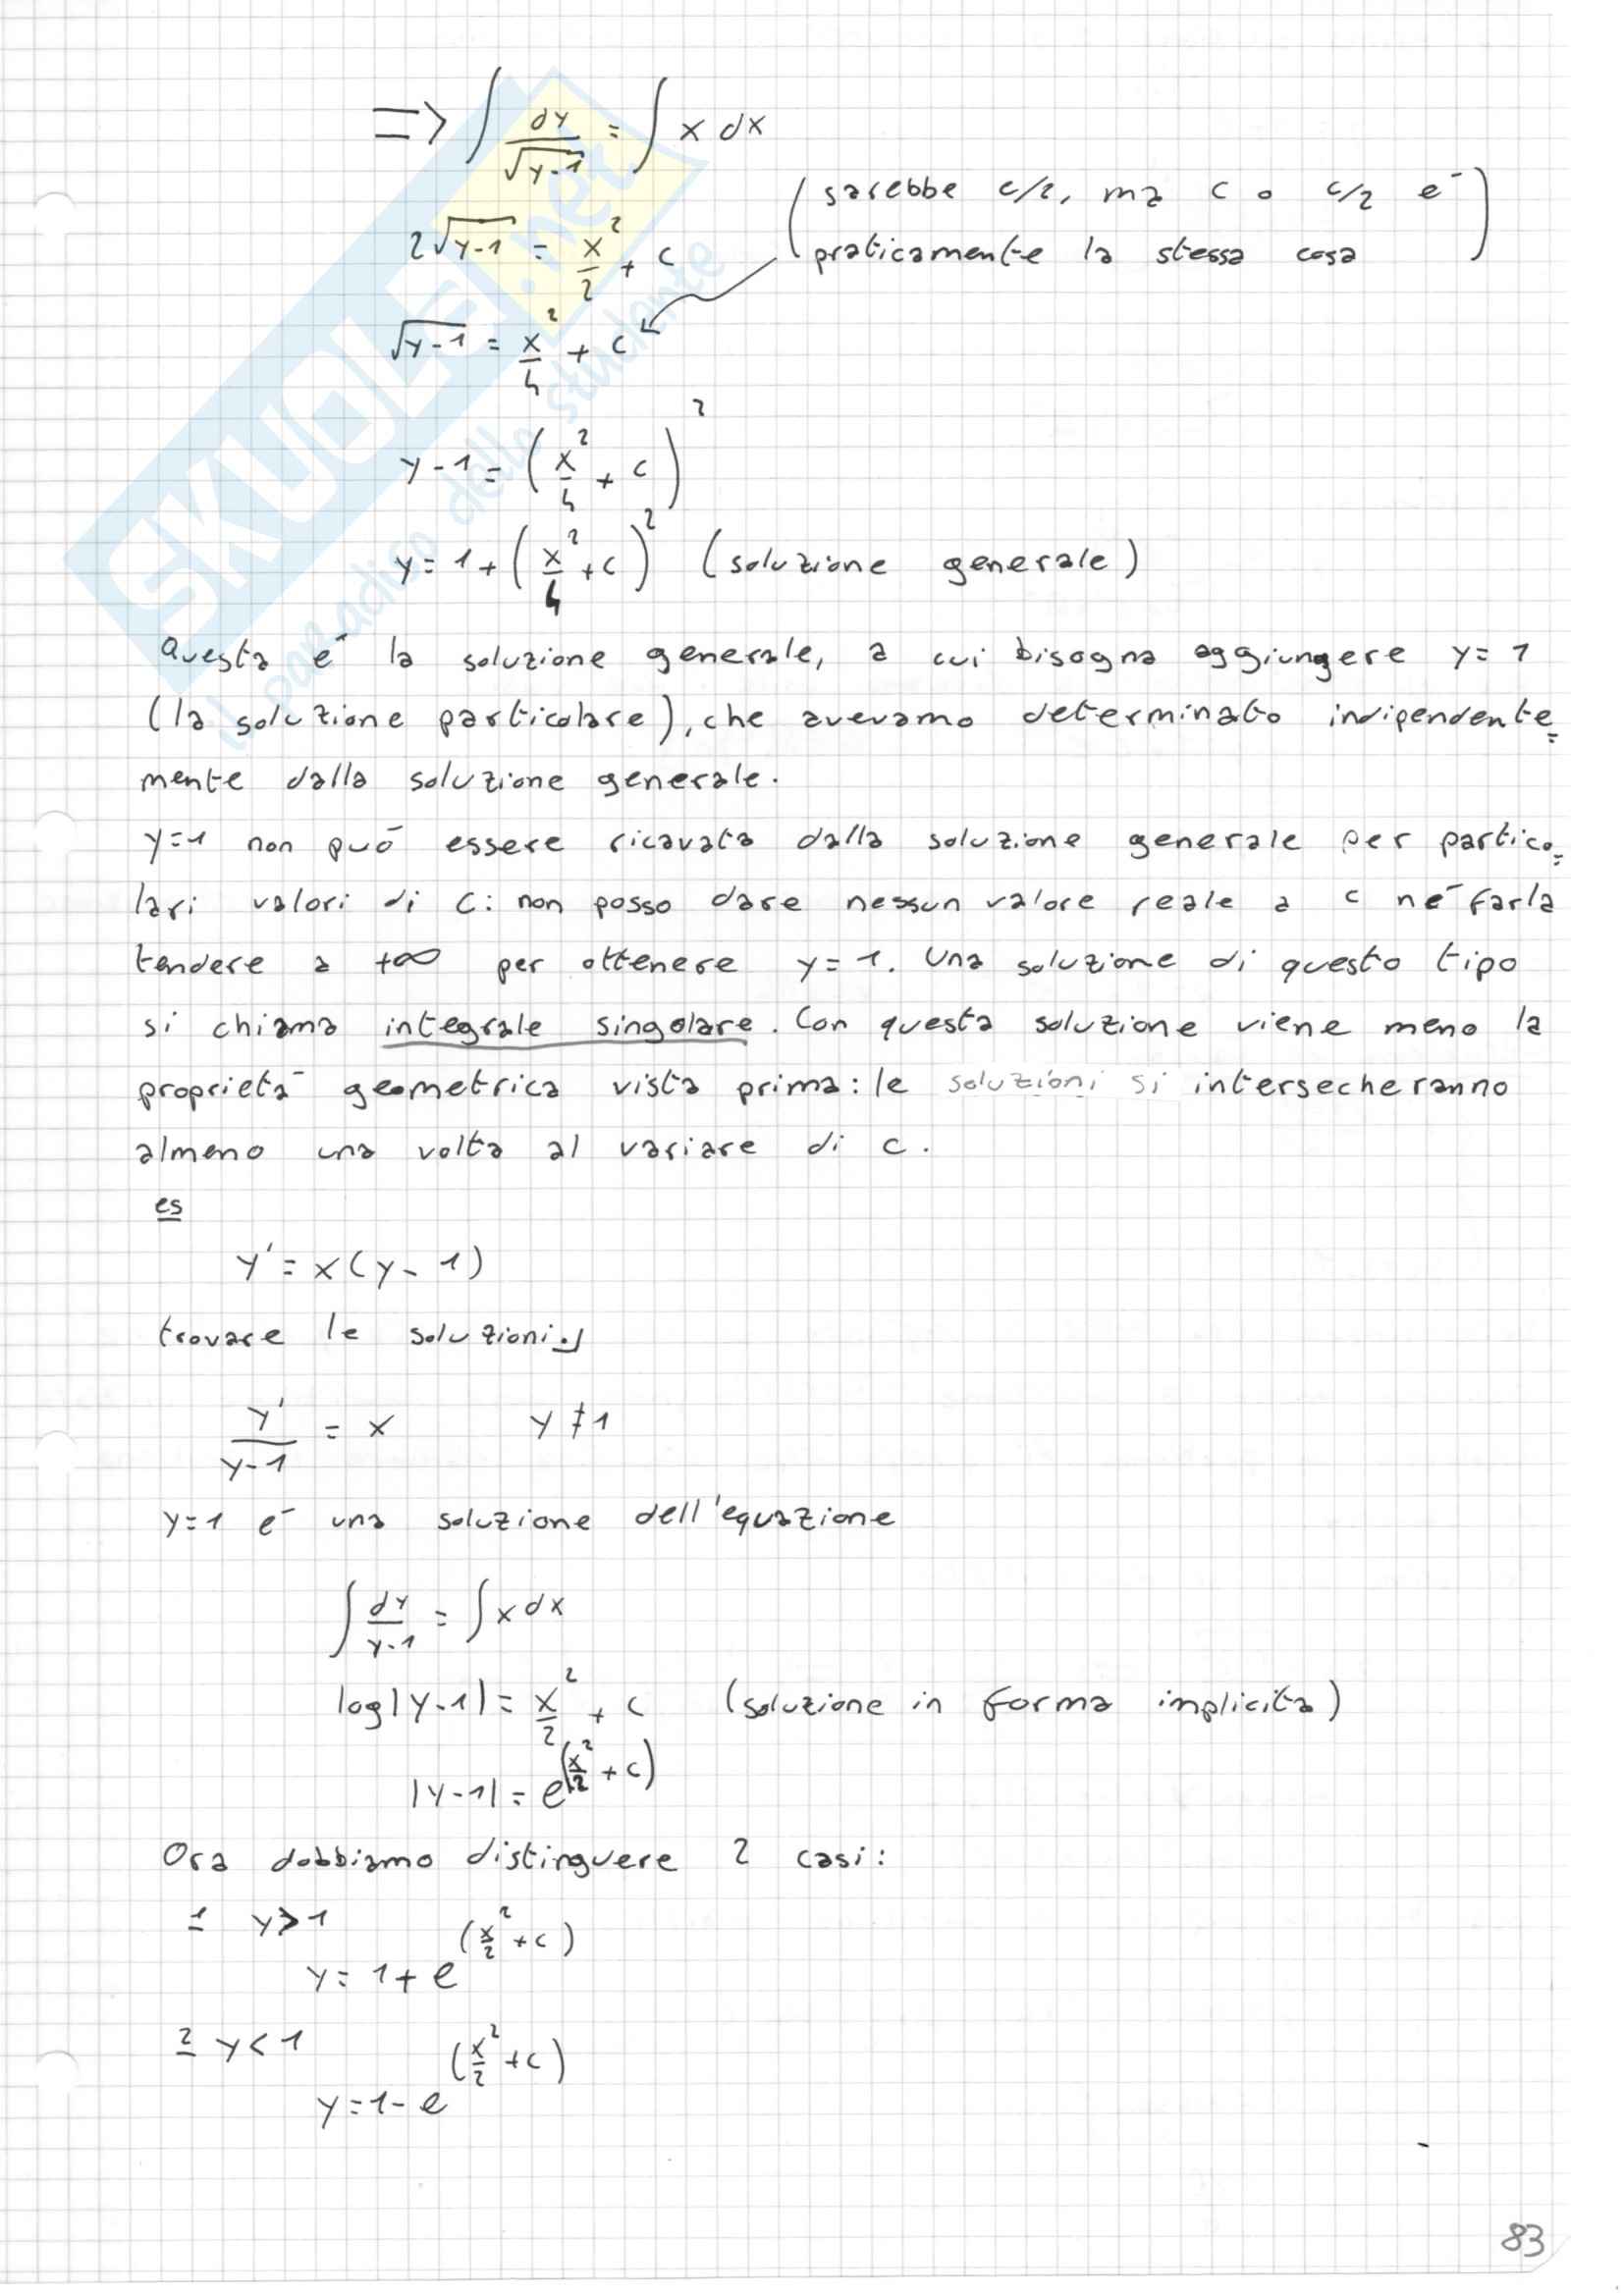 => ∫ dy/√(y-1) = ∫ x dx
(sarebbe c/2, ma c o c/2 è
praticamente la stessa cosa)
2√(y-1) = x²/2 + c
√(y-1) = x²/4 + c
y-1 = (x²/4 + c)²
y = 1 + (x²/4 + c)² (soluzione generale)
Questa è la soluzione generale, a cui bisogna aggiungere y=1
(la soluzione particolare), che avevamo determinato indipendente=
mente dalla soluzione generale.
y=1 non può essere ricavata dalla soluzione generale per partico=
lari valori di c: non posso dare nessun valore reale a c né farla
tendere a +∞ per ottenere y=1. Una soluzione di questo tipo
si chiama integrale singolare. Con questa soluzione viene meno la
proprietà geometrica vista prima: le soluzioni si intersecheranno
almeno una volta al variare di c.
es
y' = x(y-1)
trovare le soluzioni.
y'/(y-1) = x y ≠ 1
y=1 è una soluzione dell'equazione
∫ dy/(y-1) = ∫ x dx
log|y-1| = x²/2 + c (soluzione in forma implicita)
|y-1| = e^(x²/2 + c)
Ora dobbiamo distinguere 2 casi:
1 y>1
y = 1 + e^(x²/2 + c)
2 y<1
y = 1 - e^(x²/2 + c)
83
SKUOLA.net
il paradiso dello studente